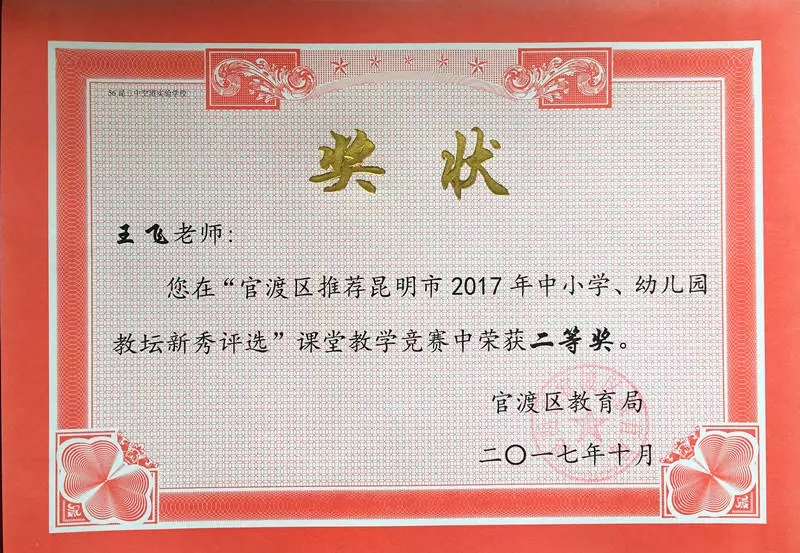 56 昆三中空港实验学校
奖 状
王飞老师:
您在“官渡区推荐昆明市 2017 年中小学、幼儿园
教坛新秀评选”课堂教学竞赛中荣获二等奖。
官渡区教育局
二〇一七年十月